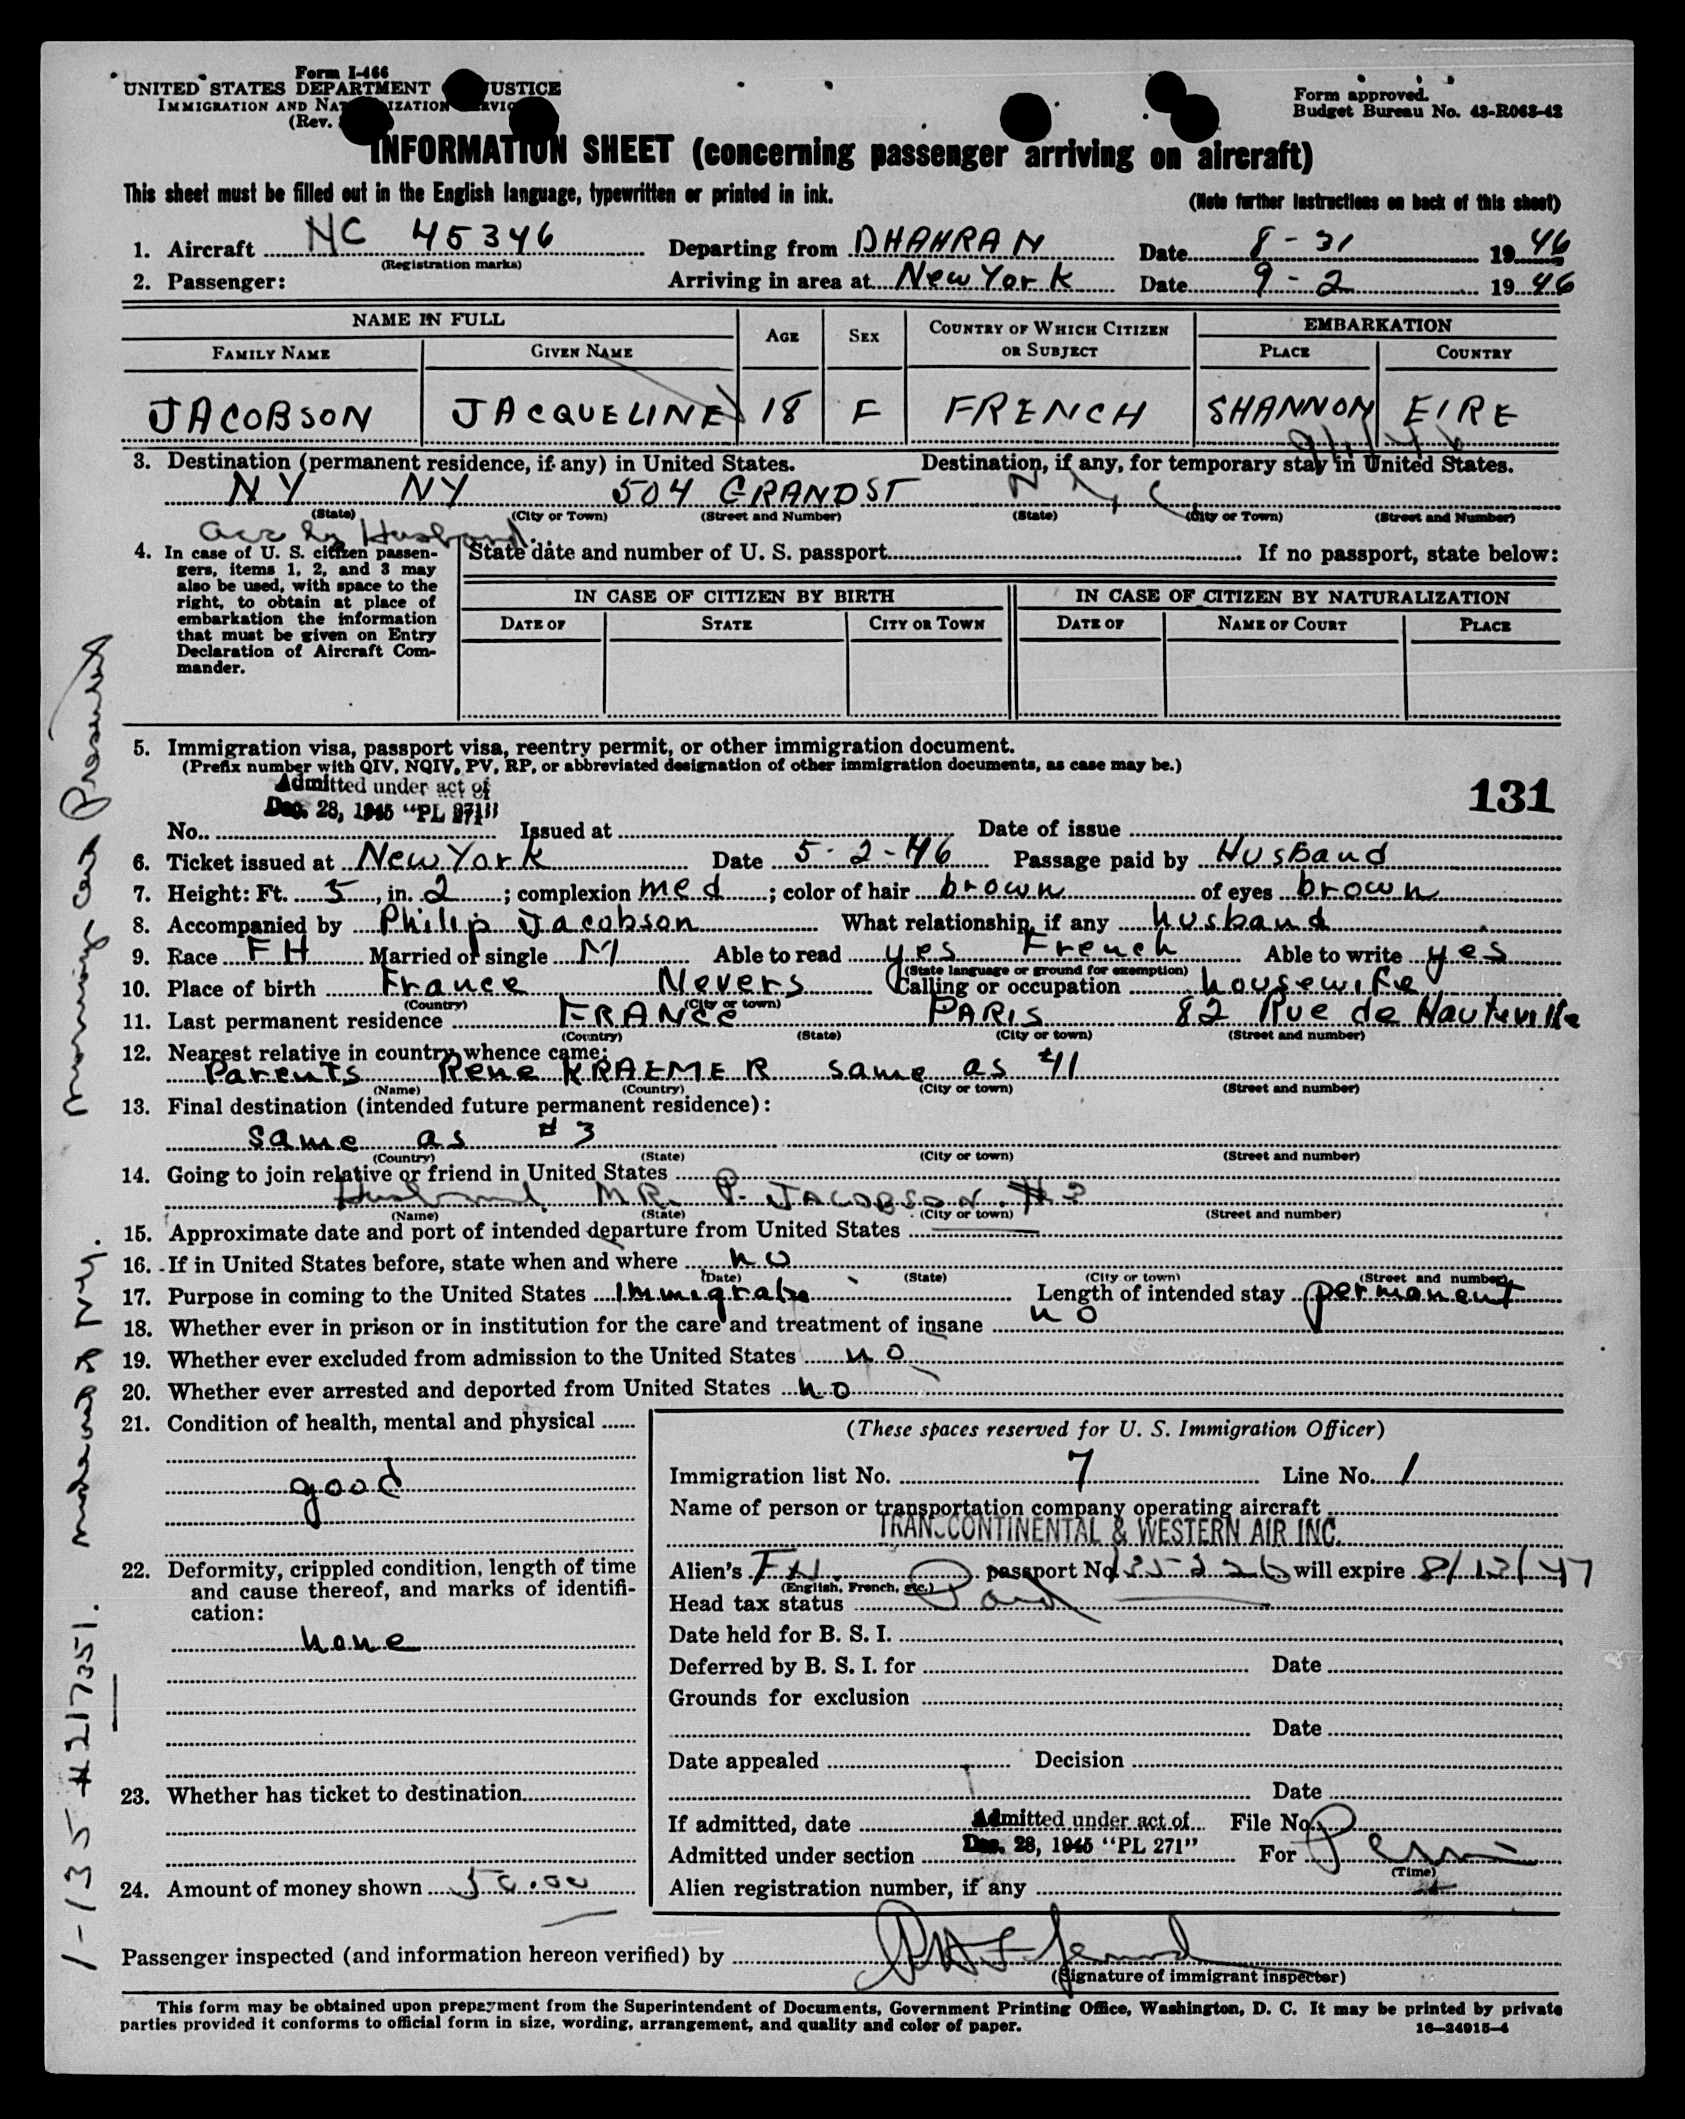 Form I-466
UNITED STATES DEPARTMENT USTICE
IMMIGRATION AND NA IZATION
(Rev.
Form approved.
Budget Bureau No. 43-R063-42
INFORMATION SHEET (concerning passenger arriving on aircraft)
This sheet must be filled out in the English language, typewritten or printed in ink.
(Note further instructions on back of this sheet)
1. Aircraft NC 45346 Departing from DHAHRAN Date 8-31 1946
(Registration marks)
2. Passenger: Arriving in area at New York Date 9-2 1946
NAME IN FULL AGE SEX COUNTRY OF WHICH CITIZEN OR SUBJECT EMBARKATION
FAMILY NAME GIVEN NAME PLACE COUNTRY
JACOBSON JACQUELINE 18 F FRENCH SHANNON EIRE
3. Destination (permanent residence, if any) in United States. Destination, if any, for temporary stay in United States.
NY NY 504 GRAND ST N Y C
(State) (City or Town) (Street and Number) (State) (City or Town) (Street and Number)
acc by Husband
4. In case of U. S. citizen passen-
gers, items 1, 2, and 3 may
also be used, with space to the
right, to obtain at place of
embarkation the information
that must be given on Entry
Declaration of Aircraft Com-
mander.
State date and number of U. S. passport If no passport, state below:
IN CASE OF CITIZEN BY BIRTH IN CASE OF CITIZEN BY NATURALIZATION
DATE OF STATE CITY OR TOWN DATE OF NAME OF COURT PLACE
5. Immigration visa, passport visa, reentry permit, or other immigration document.
(Prefix number with QIV, NQIV, PV, RP, or abbreviated designation of other immigration documents, as case may be.)
Admitted under act of
Dec. 28, 1945 "PL 271"
131
No. Issued at Date of issue
6. Ticket issued at New York Date 5-2-46 Passage paid by Husband
7. Height: Ft. 5, in. 2; complexion med; color of hair brown of eyes brown
8. Accompanied by Philip Jacobson What relationship, if any husband
9. Race FH Married or single M Able to read yes French Able to write yes
(State language or ground for exemption)
10. Place of birth France Nevers Calling or occupation housewife
(Country) (City or town)
11. Last permanent residence FRANCE PARIS 82 Rue de Hauteville
(Country) (State) (City or town) (Street and number)
12. Nearest relative in country whence came:
Parents Rene KRAEMER same as #11
(Name) (Country) (City or town) (Street and number)
13. Final destination (intended future permanent residence):
same as #3
(Country) (State) (City or town) (Street and number)
14. Going to join relative or friend in United States
Husband MR. P. JACOBSON #3
(Name) (State) (City or town) (Street and number)
15. Approximate date and port of intended departure from United States
16. If in United States before, state when and where no
(Date) (State) (City or town) (Street and number)
17. Purpose in coming to the United States Immigrate Length of intended stay permanent
18. Whether ever in prison or in institution for the care and treatment of insane no
19. Whether ever excluded from admission to the United States no
20. Whether ever arrested and deported from United States no
21. Condition of health, mental and physical
good
22. Deformity, crippled condition, length of time
and cause thereof, and marks of identifi-
cation:
none
23. Whether has ticket to destination
24. Amount of money shown 50.00
(These spaces reserved for U. S. Immigration Officer)
Immigration list No. 7 Line No. 1
Name of person or transportation company operating aircraft
TRANSCONTINENTAL & WESTERN AIR INC.
Alien's FH. passport No. will expire 8/13/47
(English, French, etc.)
Head tax status Paid
Date held for B. S. I.
Deferred by B. S. I. for Date
Grounds for exclusion
Date
Date appealed Decision
Date
If admitted, date Admitted under act of File No.
Admitted under section Dec. 28, 1945 "PL 271" For Perm
(Time)
Alien registration number, if any
Passenger inspected (and information hereon verified) by
(Signature of immigrant inspector)
This form may be obtained upon prepayment from the Superintendent of Documents, Government Printing Office, Washington, D. C. It may be printed by private
parties provided it conforms to official form in size, wording, arrangement, and quality and color of paper.
16—24915-4
1-135 #217351. Presented